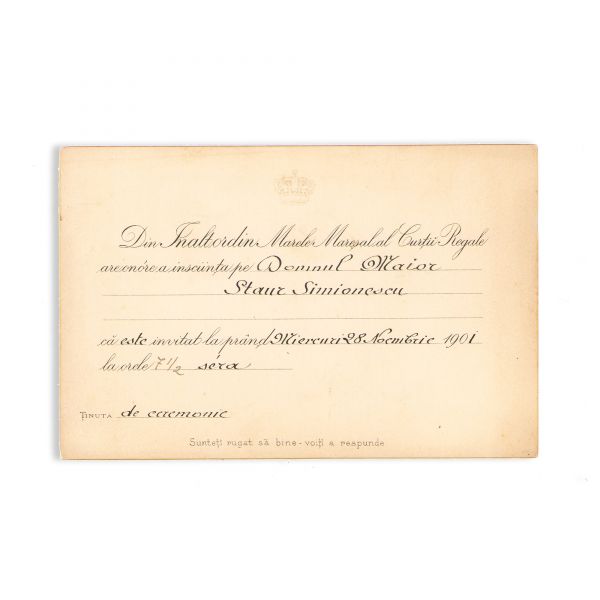 Din Înaltordin Marele Mareşal al Curţii Regale
are onóre a insciinţa pe Domnul Maior
Staur Simionescu
că este invitat la prând Miercuri 28 Noembrie 1901
la orele 7 1/2 séra
ŢINUTA de ceremonie
Sunteţi rugat să bine-voiţi a respunde